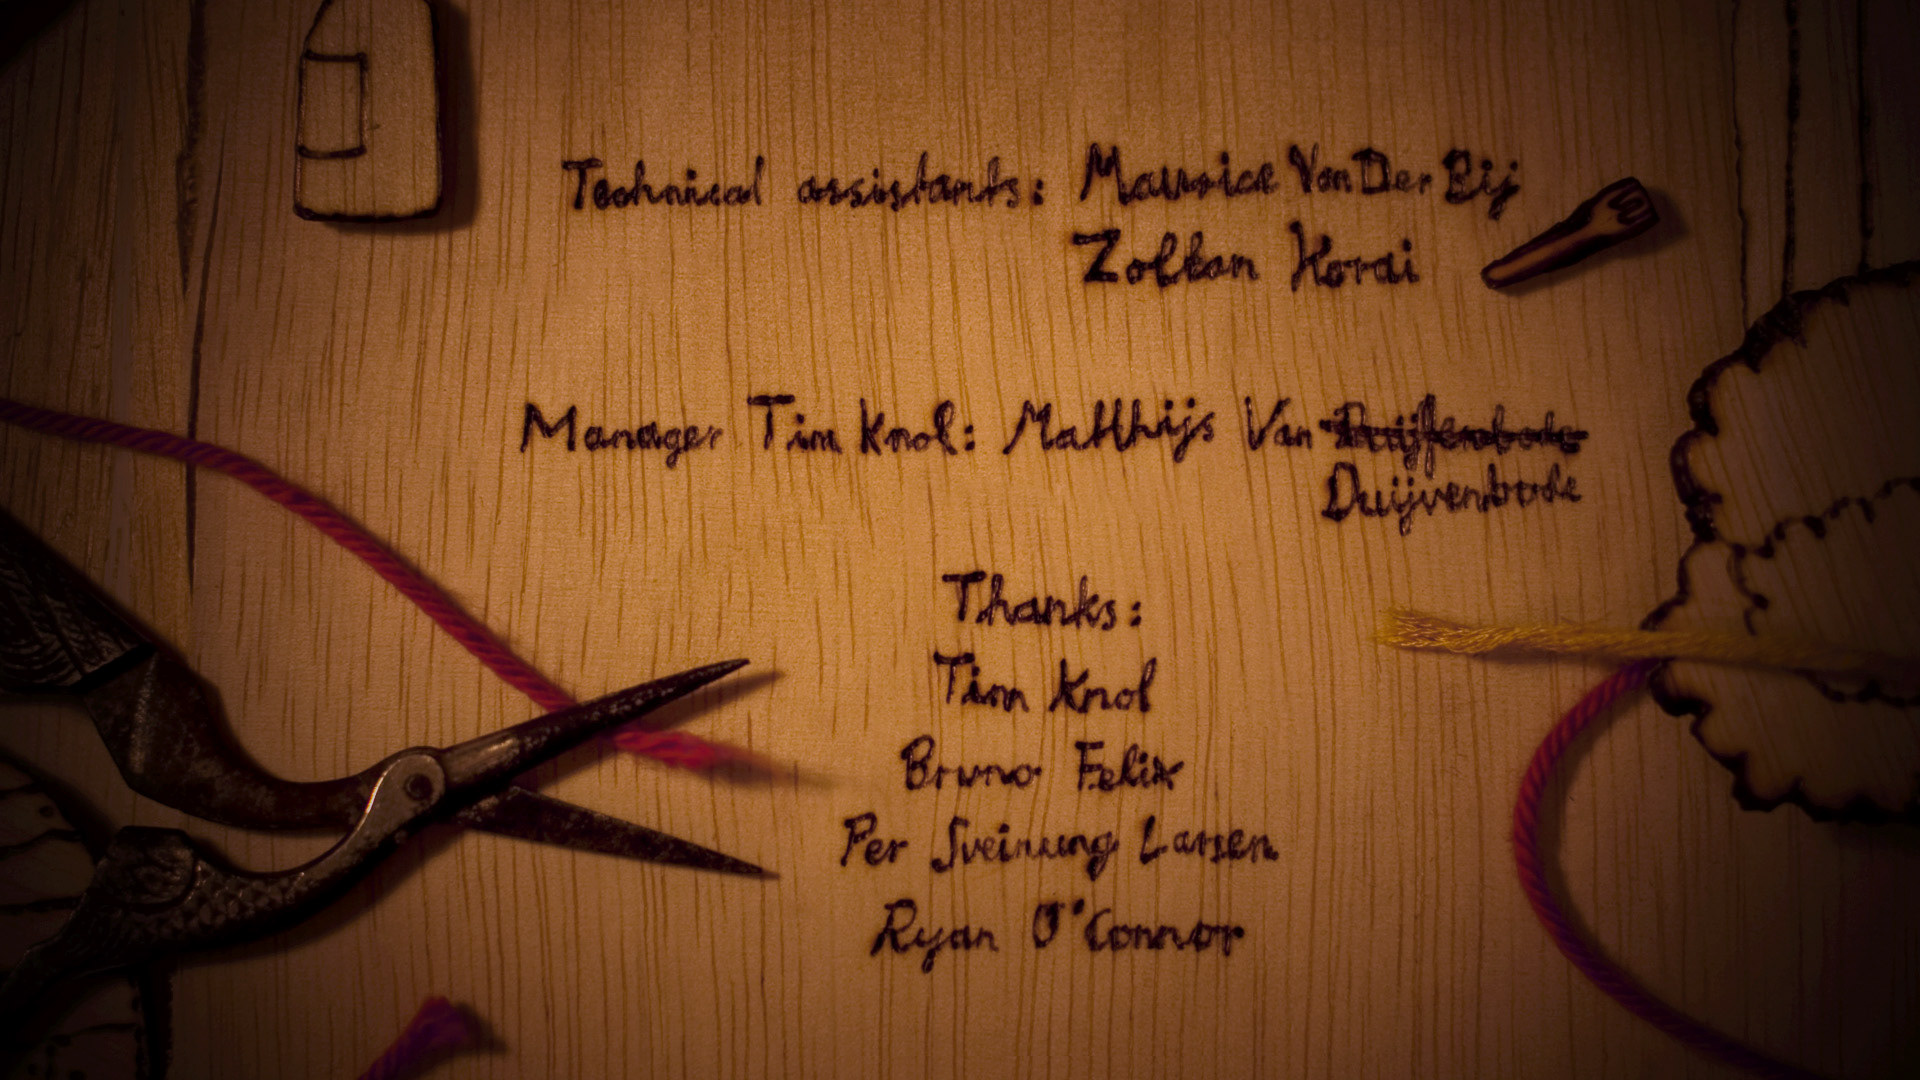 Technical assistants: Maurice Van Der Bij
Zoltan Korai
Manager Tim Knol: Matthijs Van Duijfenbode
Duijvenbode
Thanks:
Tim Knol
Bruno Felix
Per Sveinung Larsen
Ryan O'Connor